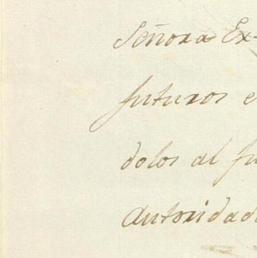 Señora Ex-
futuros e
dolos al fu
Autoridad